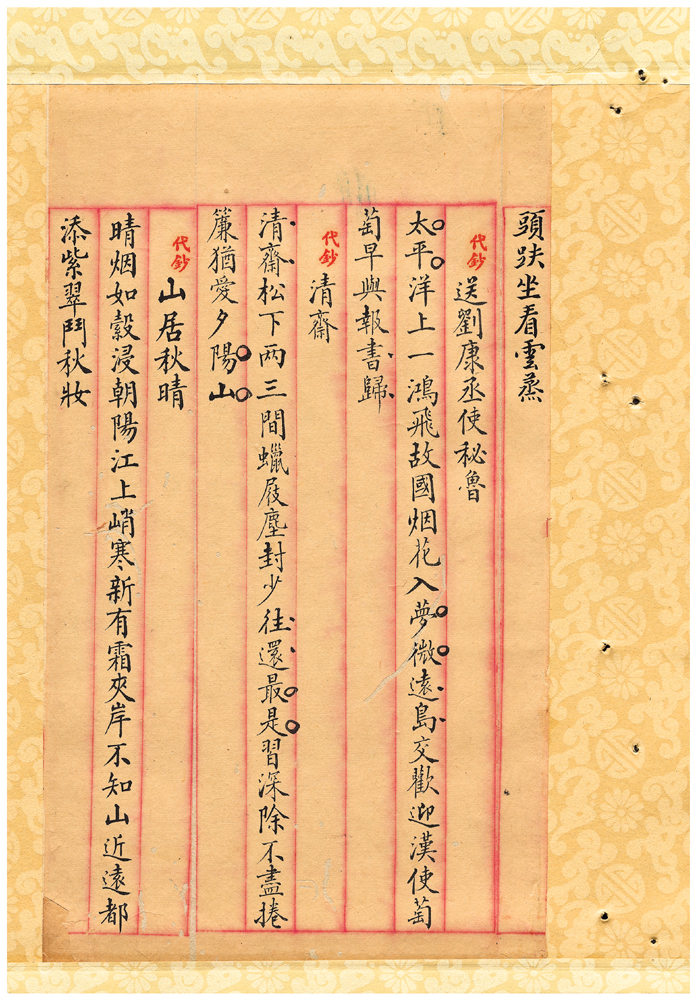 頭趺坐看雲蒸
代鈔
送劉康丞使秘魯
太平洋上一鴻飛故國烟花入夢微遠島交歡迎漢使萄
萄早與報書歸
代鈔
清齋
清齋松下两三間蠟屐塵封少往還最是習深除不盡捲
簾猶愛夕陽山
代鈔
山居秋晴
晴烟如縠浸朝陽江上峭寒新有霜夾岸不知山近遠都
添紫翠鬥秋妝